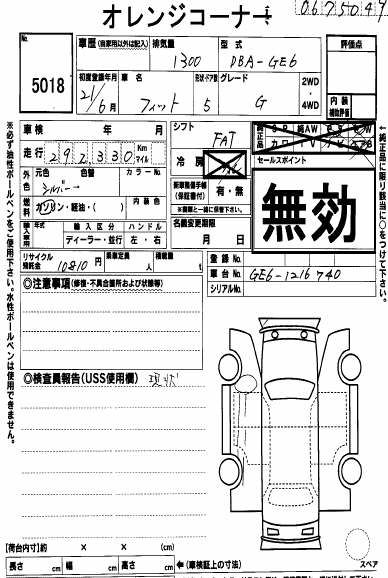 オレンジコーナー
0675047
5018
車歴 (自家用以外は記入) 排気量 型式 評価点
1300 DBA-GE6
初度登録年月 車名 形状・ドア数 グレード 2WD
21/6月 フィット 5 G ・4WD
内装補助評価
車検 年 月 シフト FAT
純正品 SR 純AW PS PW
カワ TV ナビ エアB
走行 292,330 Km マイル
冷房
セールスポイント
無効
外色 元色 色替 カラーNo.
シルバー
新車整備手帳(保証書付) 有・無
※書類と一緒に保管下さい。
燃料 ガソリン・軽油・( ) 内装色
名義変更期限
月 日
輸入車用 年式 輸入区分 ハンドル
ディーラー・並行 左・右
登録No.
リサイクル預託金 10810 円 乗車定員 人 積載量 t
車台No. GE6-1216740
シリアルNo.
◎注意事項 (修復・不具合箇所および状態等)
◎検査員報告(USS使用欄) 現状
【荷台内寸】約 × × (cm)
長さ cm 幅 cm 高さ cm ←(車検証上の寸法)
スペア
※必ず油性ボールペンをご使用下さい。水性ボールペンは使用できません。
※純正品に限り該当に○をつけて下さい。